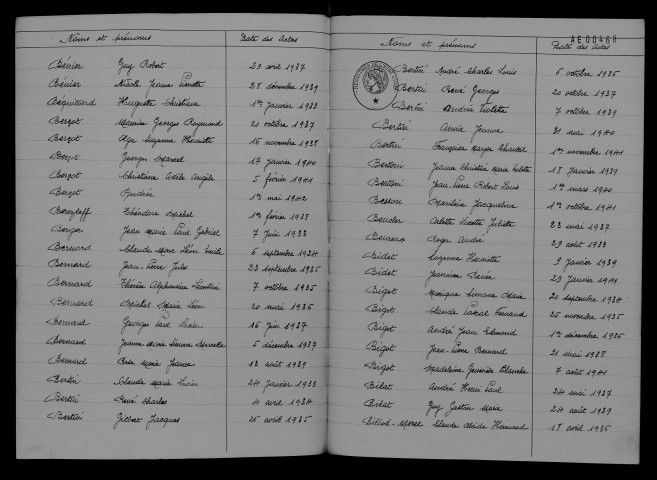 Noms et prénoms Date des Actes
Bénier Guy Robert 29 avril 1937
Bénier Nicole Jeanne Pierrette 28 décembre 1939
Béquillard Huguette Christiane 1er janvier 1933
Berçot Maurice Georges Raymond 20 octobre 1937
Berçot Olga Suzanne Henriette 16 novembre 1938
Berçot Georges Marcel 17 janvier 1940
Berçot Christiane Adèle Angèle 5 février 1941
Berçot Andrée 1er mai 1942
Théodore Michel 1er février 1938
Berger Jean Marie Paul Gabriel 7 juin 1933
Bernard Claude Marc Léon Emile 6 septembre 1934
Bernard Jean-Pierre Jules 23 septembre 1935
Bernard Thérèse Alphonsine Léontine 7 octobre 1935
Bernard Michel Marie Léon 20 mai 1936
Bernard Georges Paul Lucien 16 juin 1937
Bernard Jeanne Marie Simone Marcelle 5 décembre 1937
Bernard Rose Marie Jeanne 13 août 1939
Bertin Claude Marie Lucien 24 janvier 1933
Bertin René Charles 4 avril 1934
Bertin Gilbert Jacques 26 avril 1935
AE00468
Noms et prénoms Date des Actes
Bertin André Charles Louis 6 octobre 1936
Bertin René Georges 20 octobre 1937
Bertin Andrée Violette 7 octobre 1939
Bertin Annie Jeanne 31 mai 1940
Bertin Françoise Maryse Chantal 1er novembre 1941
Bertoni Jeanne Christiane Marie 18 janvier 1939
Bertoni Jean-Pierre Robert Louis 1er mars 1940
Besson Marilène Jacqueline 1er octobre 1941
Beucler Arlette Lucette Juliette 23 mai 1939
Beureux Roger André 29 août 1933
Bidet Suzanne Henriette 9 janvier 1939
Bidet Jeannine Renée 29 janvier 1941
Bigot Monique Simone Marie 20 septembre 1934
Bigot Claude Pascal Fernand 25 novembre 1935
Bigot André Jean Edmond 1er décembre 1936
Bigot Jean-Pierre Bernard 21 mai 1938
Bigot Madeleine Geneviève Blanche 7 août 1941
Bilat André Henri Paul 24 mai 1937
Bilat Guy Gaston Marie 24 août 1939
Billod-Morel Claude Alcide Fernand 18 avril 1936